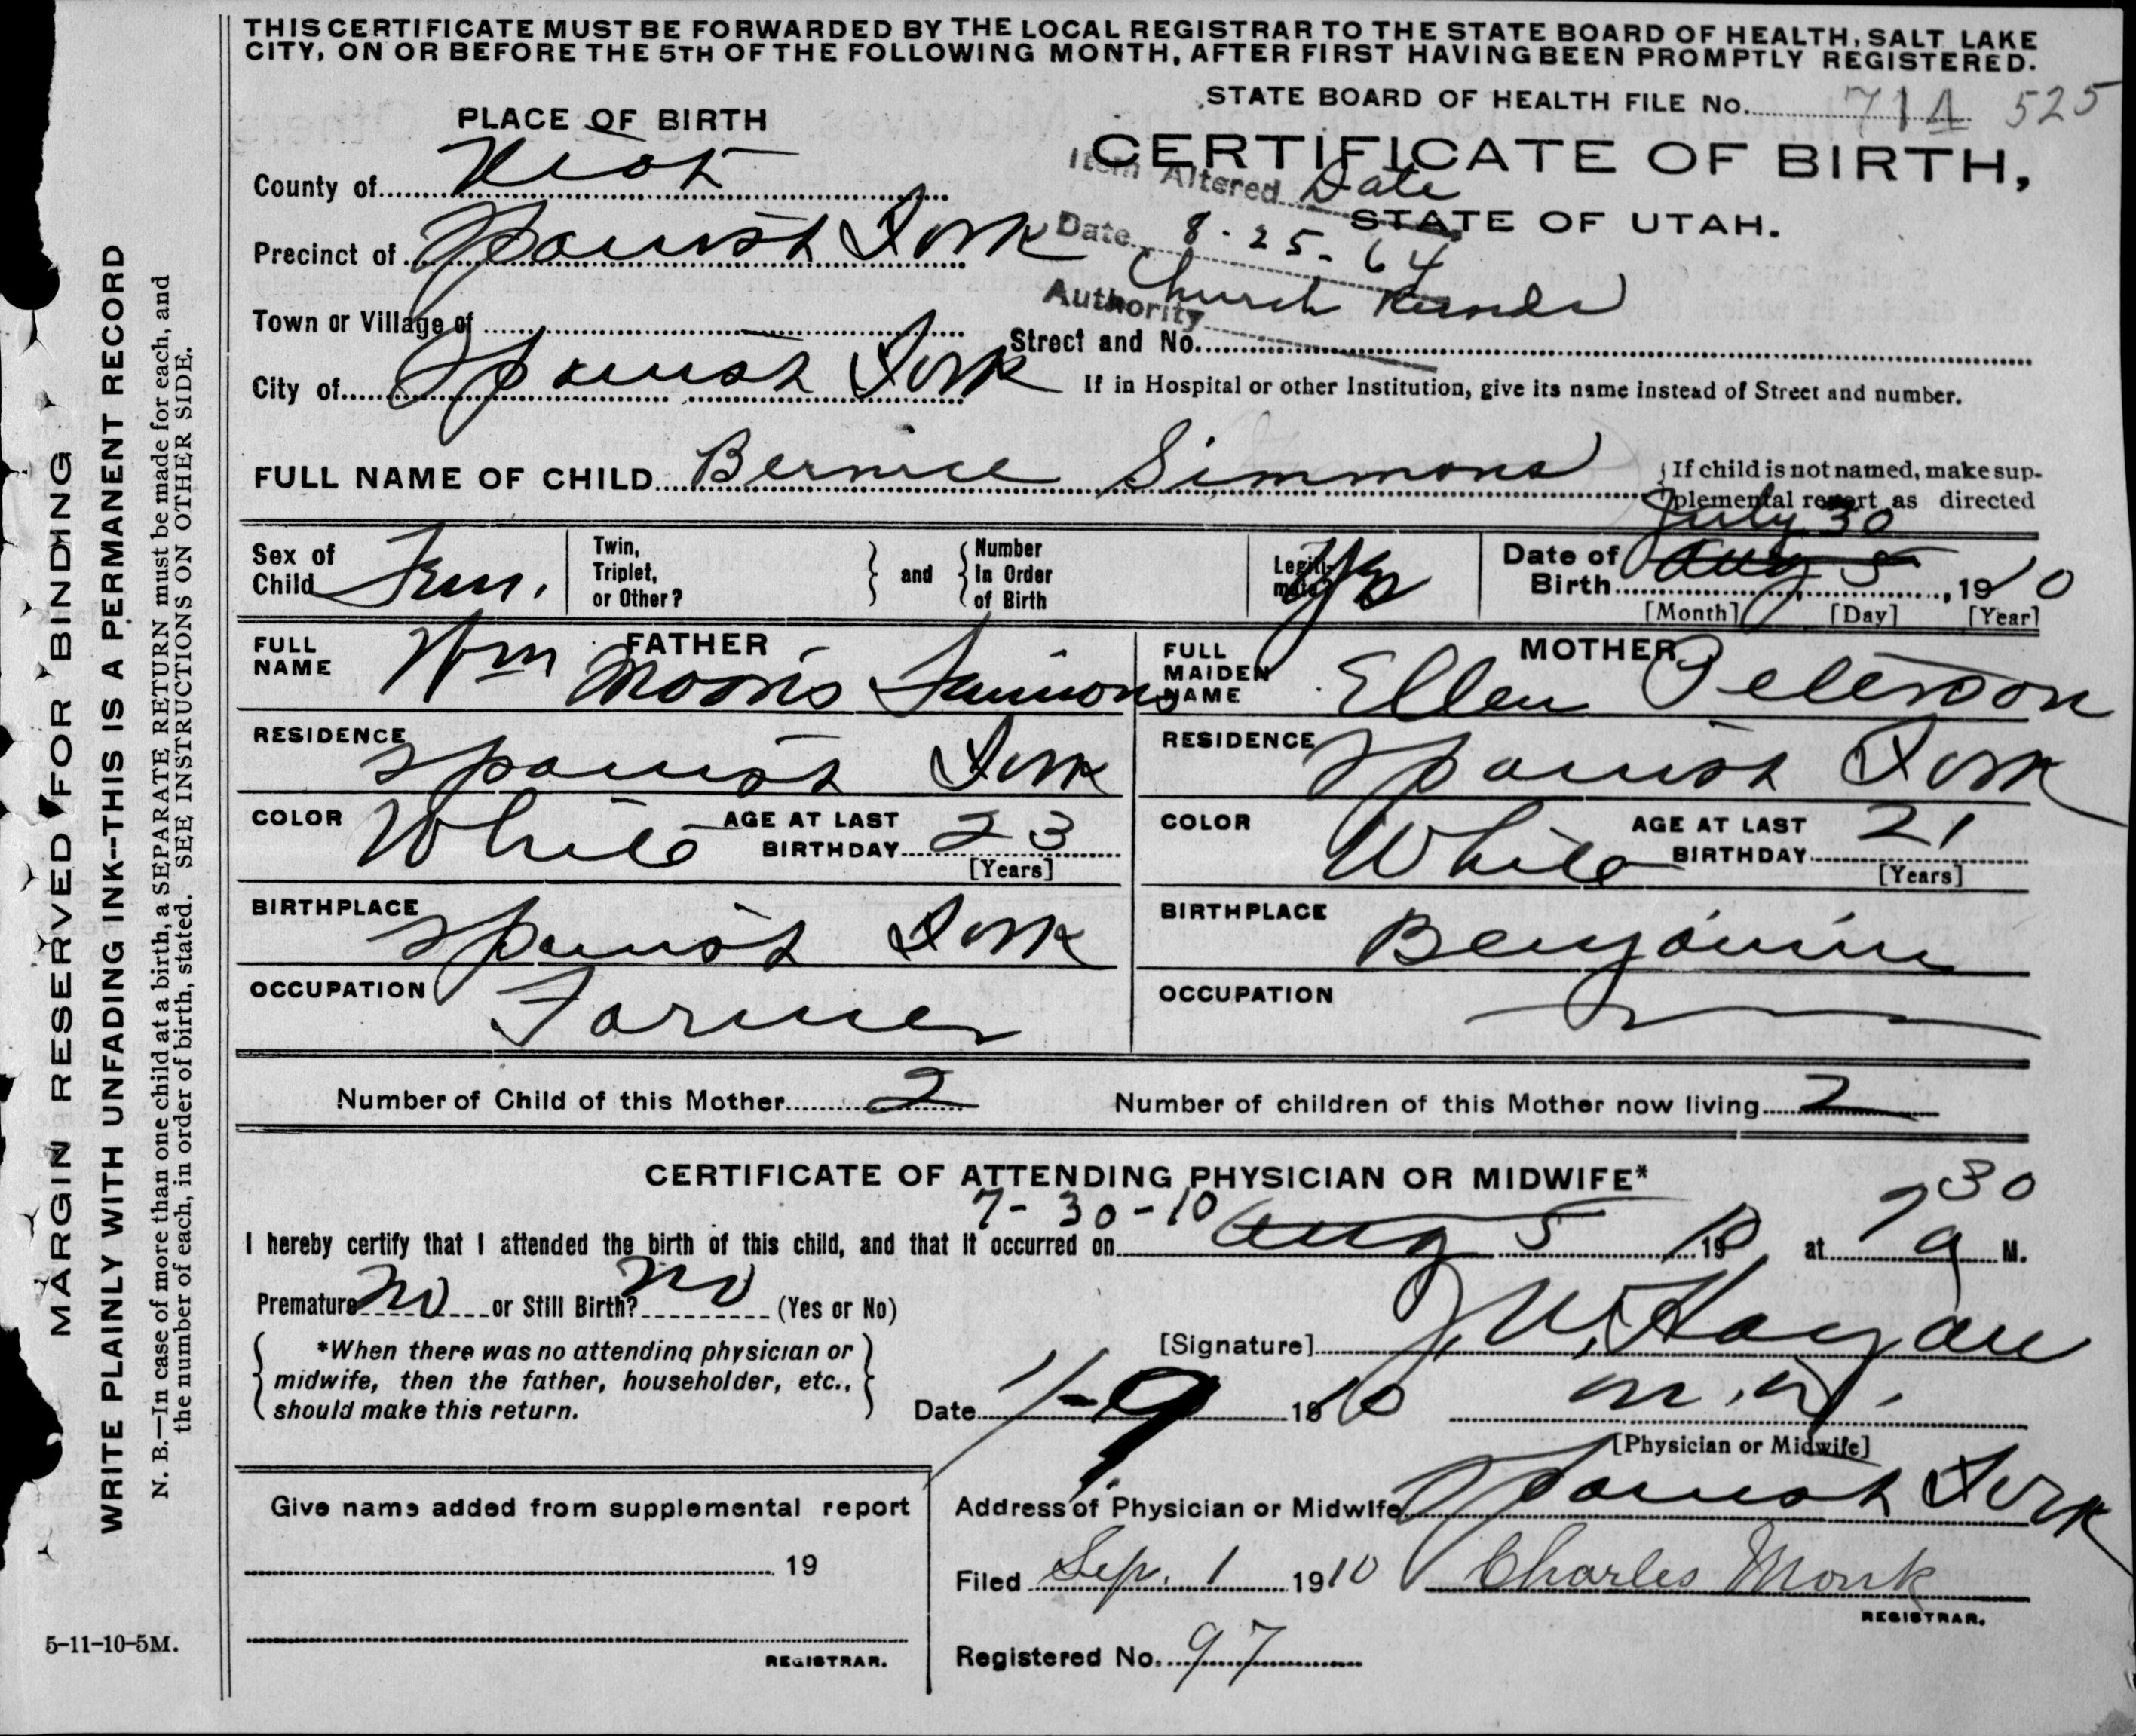 THIS CERTIFICATE MUST BE FORWARDED BY THE LOCAL REGISTRAR TO THE STATE BOARD OF HEALTH, SALT LAKE
CITY, ON OR BEFORE THE 5TH OF THE FOLLOWING MONTH, AFTER FIRST HAVING BEEN PROMPTLY REGISTERED.
STATE BOARD OF HEALTH FILE No. 71A 525
PLACE OF BIRTH
CERTIFICATE OF BIRTH,
STATE OF UTAH.
Item Altered Date
Date 8-25-64
Authority Church
County of Utah
Precinct of Spanish Fork
Town or Village of
Street and No.
City of Spanish Fork
If in Hospital or other Institution, give its name instead of Street and number.
FULL NAME OF CHILD Bernice Simmons
{If child is not named, make sup-
plemental report as directed
July 30
Sex of Child Fem.
Twin, Triplet, or Other?
and
Number In Order of Birth
Legiti-mate? Yes
Date of Birth Aug 5, 1910
[Month] [Day] [Year]
FATHER
FULL NAME Wm Morris Simmons
MOTHER
FULL MAIDEN NAME Ellen Peterson
RESIDENCE Spanish Fork
RESIDENCE Spanish Fork
COLOR White AGE AT LAST BIRTHDAY 23 [Years]
COLOR White AGE AT LAST BIRTHDAY 21 [Years]
BIRTHPLACE Spanish Fork
BIRTHPLACE Benjamin
OCCUPATION Farmer
OCCUPATION
Number of Child of this Mother 2
Number of children of this Mother now living 2
CERTIFICATE OF ATTENDING PHYSICIAN OR MIDWIFE*
7-30-10
I hereby certify that I attended the birth of this child, and that it occurred on Aug 5 1910, at 7 30 a M.
Premature No or Still Birth? No (Yes or No)
*When there was no attending physician or
midwife, then the father, householder, etc.,
should make this return.
[Signature] J. W. Hagan
M.D.
[Physician or Midwife]
Date 1910
Give name added from supplemental report
19
REGISTRAR.
Address of Physician or Midwife Spanish Fork
Filed Sep. 1 1910 Charles Monk
REGISTRAR.
Registered No. 97
MARGIN RESERVED FOR BINDING
WRITE PLAINLY WITH UNFADING INK--THIS IS A PERMANENT RECORD
N. B.—In case of more than one child at a birth, a SEPARATE RETURN must be made for each, and
the number of each, in order of birth, stated. SEE INSTRUCTIONS ON OTHER SIDE.
5-11-10-5M.